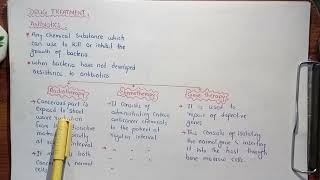 DRUG TREATMENT.
Antibiotics.
• Any chemical substance which
can use to kill or inhibit the
growth of bacteria.
• When bacteria have not developed
resistance to antibiotics
Radiotherapy
• Cancerous part is
exposed to short
wave radiation
from
material
at interval
• It both
& normal
cells.
Chemotherapy
• It consists of
administrating certain
anticancer chemicals
to the patient at
regular interval
Gene therapy
• It is used to
repair of defective
genes
• This consists of isolating
the normal gene & inserting
it into the host through
bone marrow cells.